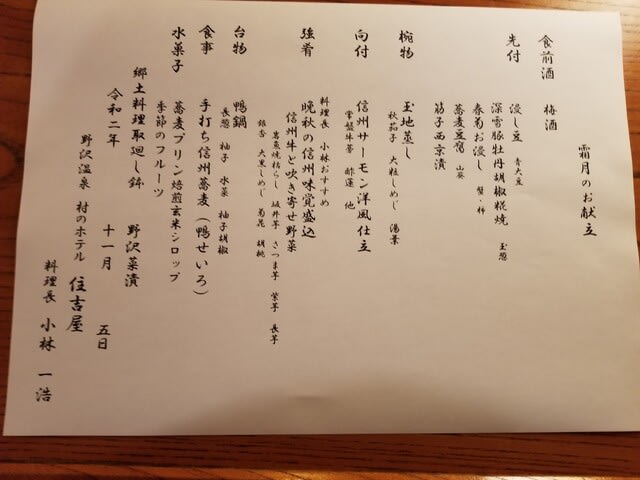 霜月のお献立
食前酒 梅酒
先付 浸し豆 青大豆
深雪豚牡丹胡椒糀焼 玉葱
春菊お浸し 蟹・柿
蕎麦豆腐 山葵
筋子西京漬
椀物 玉地蒸し
秋茄子 大粒しめじ 湯葉
向付 信州サーモン洋風仕立
常盤牛蒡 酢蓮 他
強肴 料理長 小林おすすめ
晩秋の信州味覚盛込
信州牛と吹き寄せ野菜
岩魚焼枯らし 坂井芋 さつま芋 紫芋 長芋
銀杏 大黒しめじ 菊花 胡桃
台物 鴨鍋
長葱 柚子 水菜 柚子胡椒
食事 手打ち信州蕎麦(鴨せいろ)
水菓子 蕎麦プリン焙煎玄米シロップ
季節のフルーツ
郷土料理取廻し鉢 野沢菜漬
令和二年 十一月 五日
野沢温泉 村のホテル 住吉屋
料理長 小林 一浩